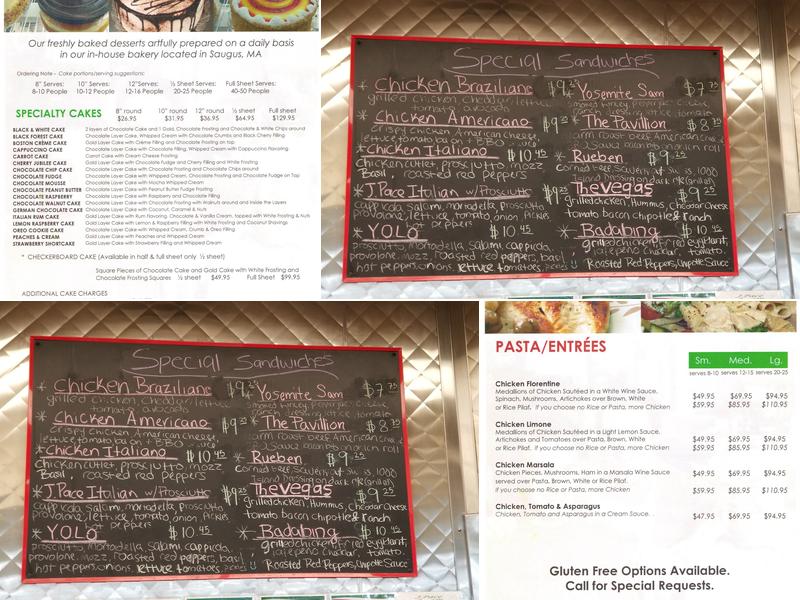 Our freshly baked desserts artfully prepared on a daily basis
in our in-house bakery located in Saugus, MA
Ordering Note - Cake portions/serving suggestions:
8" Serves: 10" Serves: 12" Serves: ½ Sheet Serves: Full Sheet Serves:
8-10 People 10-12 People 12-16 People 20-25 People 40-50 People
SPECIALTY CAKES 8" round 10" round 12" round ½ sheet Full sheet
$26.95 $31.95 $36.95 $64.95 $129.95
BLACK & WHITE CAKE 2 layers of Chocolate Cake and 1 Gold, Chocolate Frosting and Chocolate & White Chips around
BLACK FOREST CAKE Chocolate Layer Cake, Whipped Cream with Chocolate Crumbs and Black Cherry Filling
BOSTON CRÈME CAKE Gold Layer Cake with Crème Filling and Chocolate Frosting on top
CAPPUCCINO CAKE Chocolate Layer Cake with Chocolate Filling, Whipped Cream with Cappuccino Flavoring
CARROT CAKE Carrot Cake with Cream Cheese Frosting
CHERRY JUBILEE CAKE Gold Layer Cake with Chocolate Fudge and Cherry Filling and White Frosting
CHOCOLATE CHIP CAKE Gold Layer Cake with Chocolate Frosting and Chocolate Chips around
CHOCOLATE FUDGE Chocolate Layer Cake with Chocolate Filling, Whipped Cream Frosting and Chocolate Fudge on Top
CHOCOLATE MOUSSE Chocolate Layer Cake with Mocha Whipped Cream
CHOCOLATE PEANUT BUTTER Chocolate Layer Cake with Peanut Butter Fudge Frosting
CHOCOLATE RASPBERRY Chocolate Layer Cake with Raspberry and Chocolate Filling
CHOCOLATE WALNUT CAKE Chocolate Layer Cake with Chocolate Frosting with Walnuts around and Inside the Layers
GERMAN CHOCOLATE CAKE Chocolate Layer Cake with Coconut, Caramel & Nuts
ITALIAN RUM CAKE Gold Layer Cake with Rum Flavoring, Chocolate & Vanilla Cream, topped with White Frosting & Nuts
LEMON RASPBERRY CAKE Gold Layer Cake with Lemon & Raspberry Filling with White Frosting and Coconut Shavings
OREO COOKIE CAKE Chocolate Layer Cake with Whipped Cream, Crumb & Oreo Filling
PEACHES & CREAM Gold Layer Cake with Peaches and Whipped Cream
STRAWBERRY SHORTCAKE Gold Layer Cake with Strawberry Filling and Whipped Cream
* CHECKERBOARD CAKE (Available in half & full sheet only ½ sheet)
Square Pieces of Chocolate Cake and Gold Cake with White Frosting and
Chocolate Frosting Squares ½ sheet $49.95 Full Sheet $99.95
ADDITIONAL CAKE CHARGES
Special Sandwiches
* Chicken Braziliano $9.25
grilled chicken, cheddar, lettuce
tomato, avocado
* Chicken Americano $9.25
crispy chicken American cheese,
lettuce tomato bacon + BBQ
* Chicken Italiano $10.45
Chicken cutlet, prosciutto, mozz
Basil, roasted red peppers
* J.Pace Italian w/Prosciutto $9.25
capp, cola, salami, mortadella, prosciutto
provolone, lettuce, tomato, onion, Pickles
peppers
* YOLO $10.45
prosciutto, mortadella, salami, cappicola,
provolone, mozz, roasted red peppers, basil
hot peppers, onions, lettuce tomatoes,
* Yosemite Sam $7.75
smoked turkey, pepperjac cheese,
ranch, lettuce, tomato
* The Pavillion $8.75
warm roast beef American cheese,
BBQ Sauce onion roll
* Rueben $9.25
Corned beef, Sauerkraut, swiss, 1000
Island dressing on dark rye (grilled)
* The Vegas $9.25
grilled chicken, Hummus, Cheddar Cheese
tomato bacon chipotle & ranch
* Badabing $10.45
grilled chicken, fried eggplant,
jalepeno cheddar, tomato.
Roasted Red Peppers, Chipotle Sauce
Special Sandwiches
* Chicken Braziliano $9.25
grilled chicken, cheddar, lettuce
tomato, avocado
* Chicken Americano $9.25
crispy chicken American cheese,
lettuce tomato bacon + BBQ
* Chicken Italiano $10.45
Chicken cutlet, prosciutto, mozz
Basil, roasted red peppers
* J.Pace Italian w/Prosciutto $9.25
capp, cola, salami, mortadella, prosciutto
provolone, lettuce, tomato, onion, Pickles
peppers
* YOLO $10.45
prosciutto, mortadella, salami, cappicola,
provolone, mozz, roasted red peppers, basil
hot peppers, onions, lettuce tomatoes,
* Yosemite Sam $7.75
smoked turkey, pepperjac cheese,
ranch, lettuce, tomato
* The Pavillion $8.75
warm roast beef American cheese,
BBQ Sauce onion roll
* Rueben $9.25
Corned beef, Sauerkraut, swiss, 1000
Island dressing on dark rye (grilled)
* The Vegas $9.25
grilled chicken, Hummus, Cheddar Cheese
tomato bacon chipotle & ranch
* Badabing $10.45
grilled chicken, fried eggplant,
jalepeno cheddar, tomato.
Roasted Red Peppers, Chipotle Sauce
PASTA/ENTRÉES
Sm. Med. Lg.
serves 8-10 serves 12-15 serves 20-25
Chicken Florentine
Medallions of Chicken Sautéed in a White Wine Sauce,
Spinach, Mushrooms, Artichokes over Brown, White $49.95 $69.95 $94.95
or Rice Pilaf. If you choose no Rice or Pasta, more Chicken $59.95 $85.95 $110.95
Chicken Limone
Medallions of Chicken Sautéed in a Light Lemon Sauce,
Artichokes and Tomatoes over Pasta, Brown, White $49.95 $69.95 $94.95
or Rice Pilaf. If you choose no Rice or Pasta, more Chicken $59.95 $85.95 $110.95
Chicken Marsala
Chicken Pieces, Mushrooms, Ham in a Marsala Wine Sauce $49.95 $69.95 $94.95
served over Pasta, Brown, White or Rice Pilaf.
If you choose no Rice or Pasta, more Chicken $59.95 $85.95 $110.95
Chicken, Tomato & Asparagus
Chicken, Tomato and Asparagus in a Cream Sauce. . $47.95 $69.95 $94.95
Gluten Free Options Available.
Call for Special Requests.